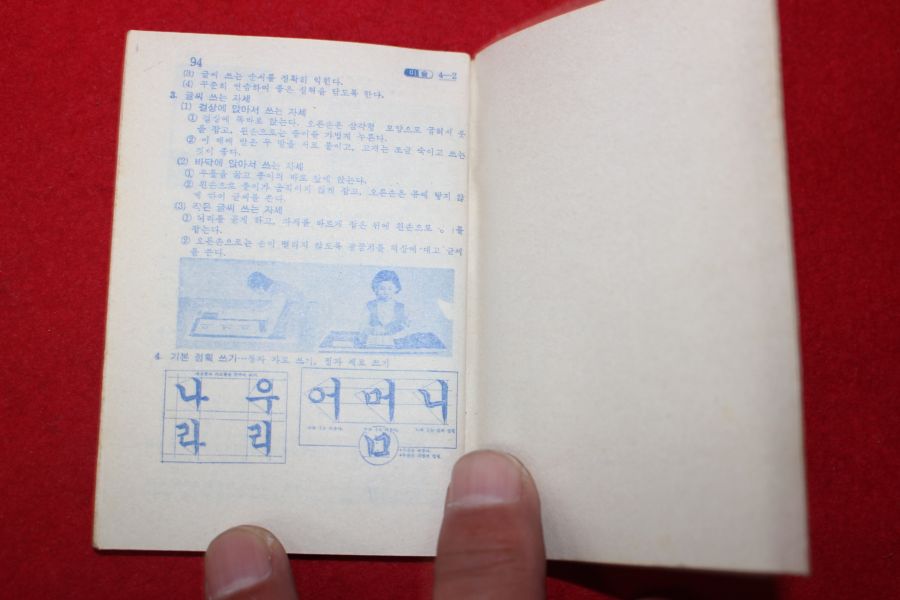 94
미술 4-2
(3) 글씨 쓰는 순서를 정확히 익힌다.
(4) 꾸준히 연습하여 좋은 실력을 닦도록 한다.
3. 글씨 쓰는 자세
(1) 걸상에 앉아서 쓰는 자세
① 걸상에 똑바로 앉는다. 오른손은 삼각형 모양으로 굽혀서 붓
을 잡고, 왼손으로는 종이를 가볍게 누른다.
② 이 때에 발은 두 발을 서로 붙이고, 고개는 조금 숙이고 쓰는
것이 좋다.
(2) 바닥에 앉아서 쓰는 자세
① 무릎을 꿇고 종이의 바로 앞에 앉는다.
② 왼손으로 종이가 움직이지 않게 잡고, 오른손은 몸에 닿지 않
게 글씨를 쓴다.
(3) 작은 글씨 쓰는 자세
① 허리를 곧게 하고, 자세를 바르게 왼손으로 를
잡는다.
② 오른손으로는 손이 떨리지 않도록 팔꿈치를 책상에 대고 글씨
를 쓴다.
4. 기본 점획 쓰기…정자 가로 쓰기, 정자 세로 쓰기
나 우
라 리
어 머 니
ㅁ